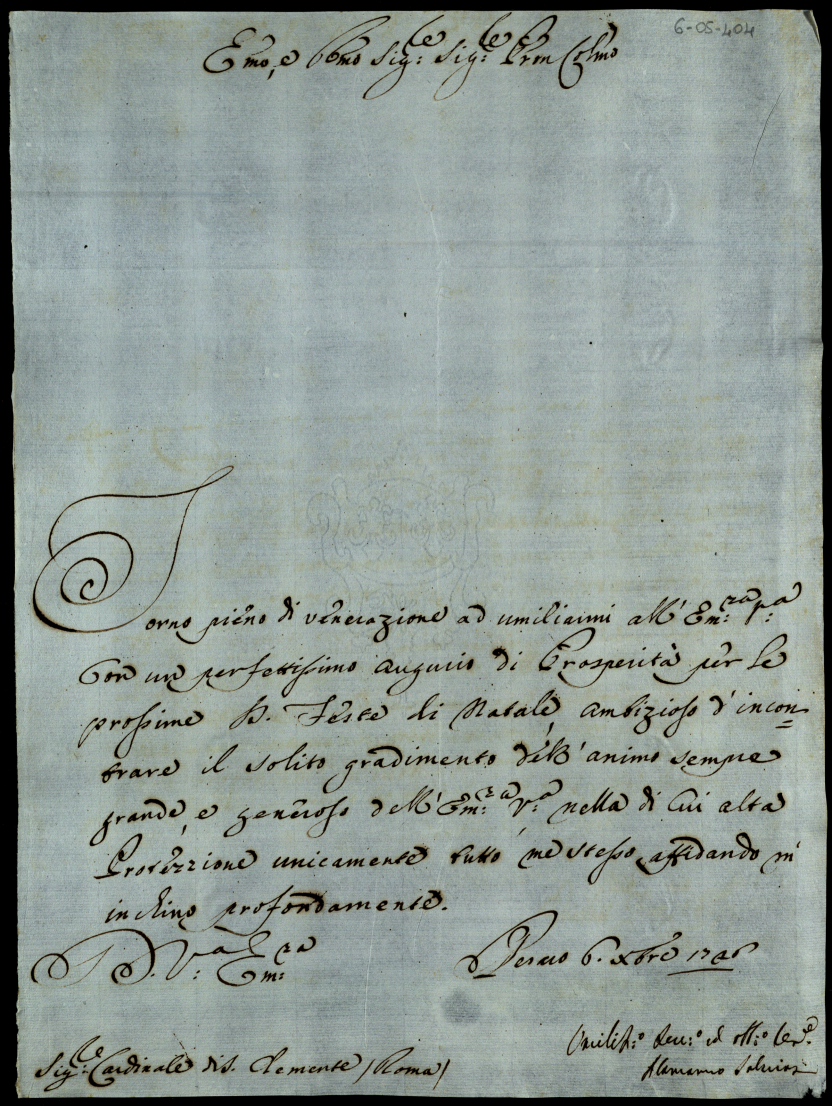 6-05-404
Emo, e Rmo Sig:re Sig:re Pron Colmo
Torno pieno di venerazione ad umiliarmi all' Em:za V:a
Con un perfettissimo augurio di Prosperità per le
prossime S. Feste di Natale, ambizioso d'incon=
trare il solito gradimento dell'animo sempre
grande, e generoso dell'Em:za V:a nella di cui alta
Protezzione unicamente tutto me stesso affidando m'
inchino profondamente.
D. V:a Em:za
Pesaro 6. Xbre 1726
Umiliss:o Deu:o ed Obl:o Ser:e
Alamanno Salviati
Sig:re Cardinale di S. Clemente /Roma/